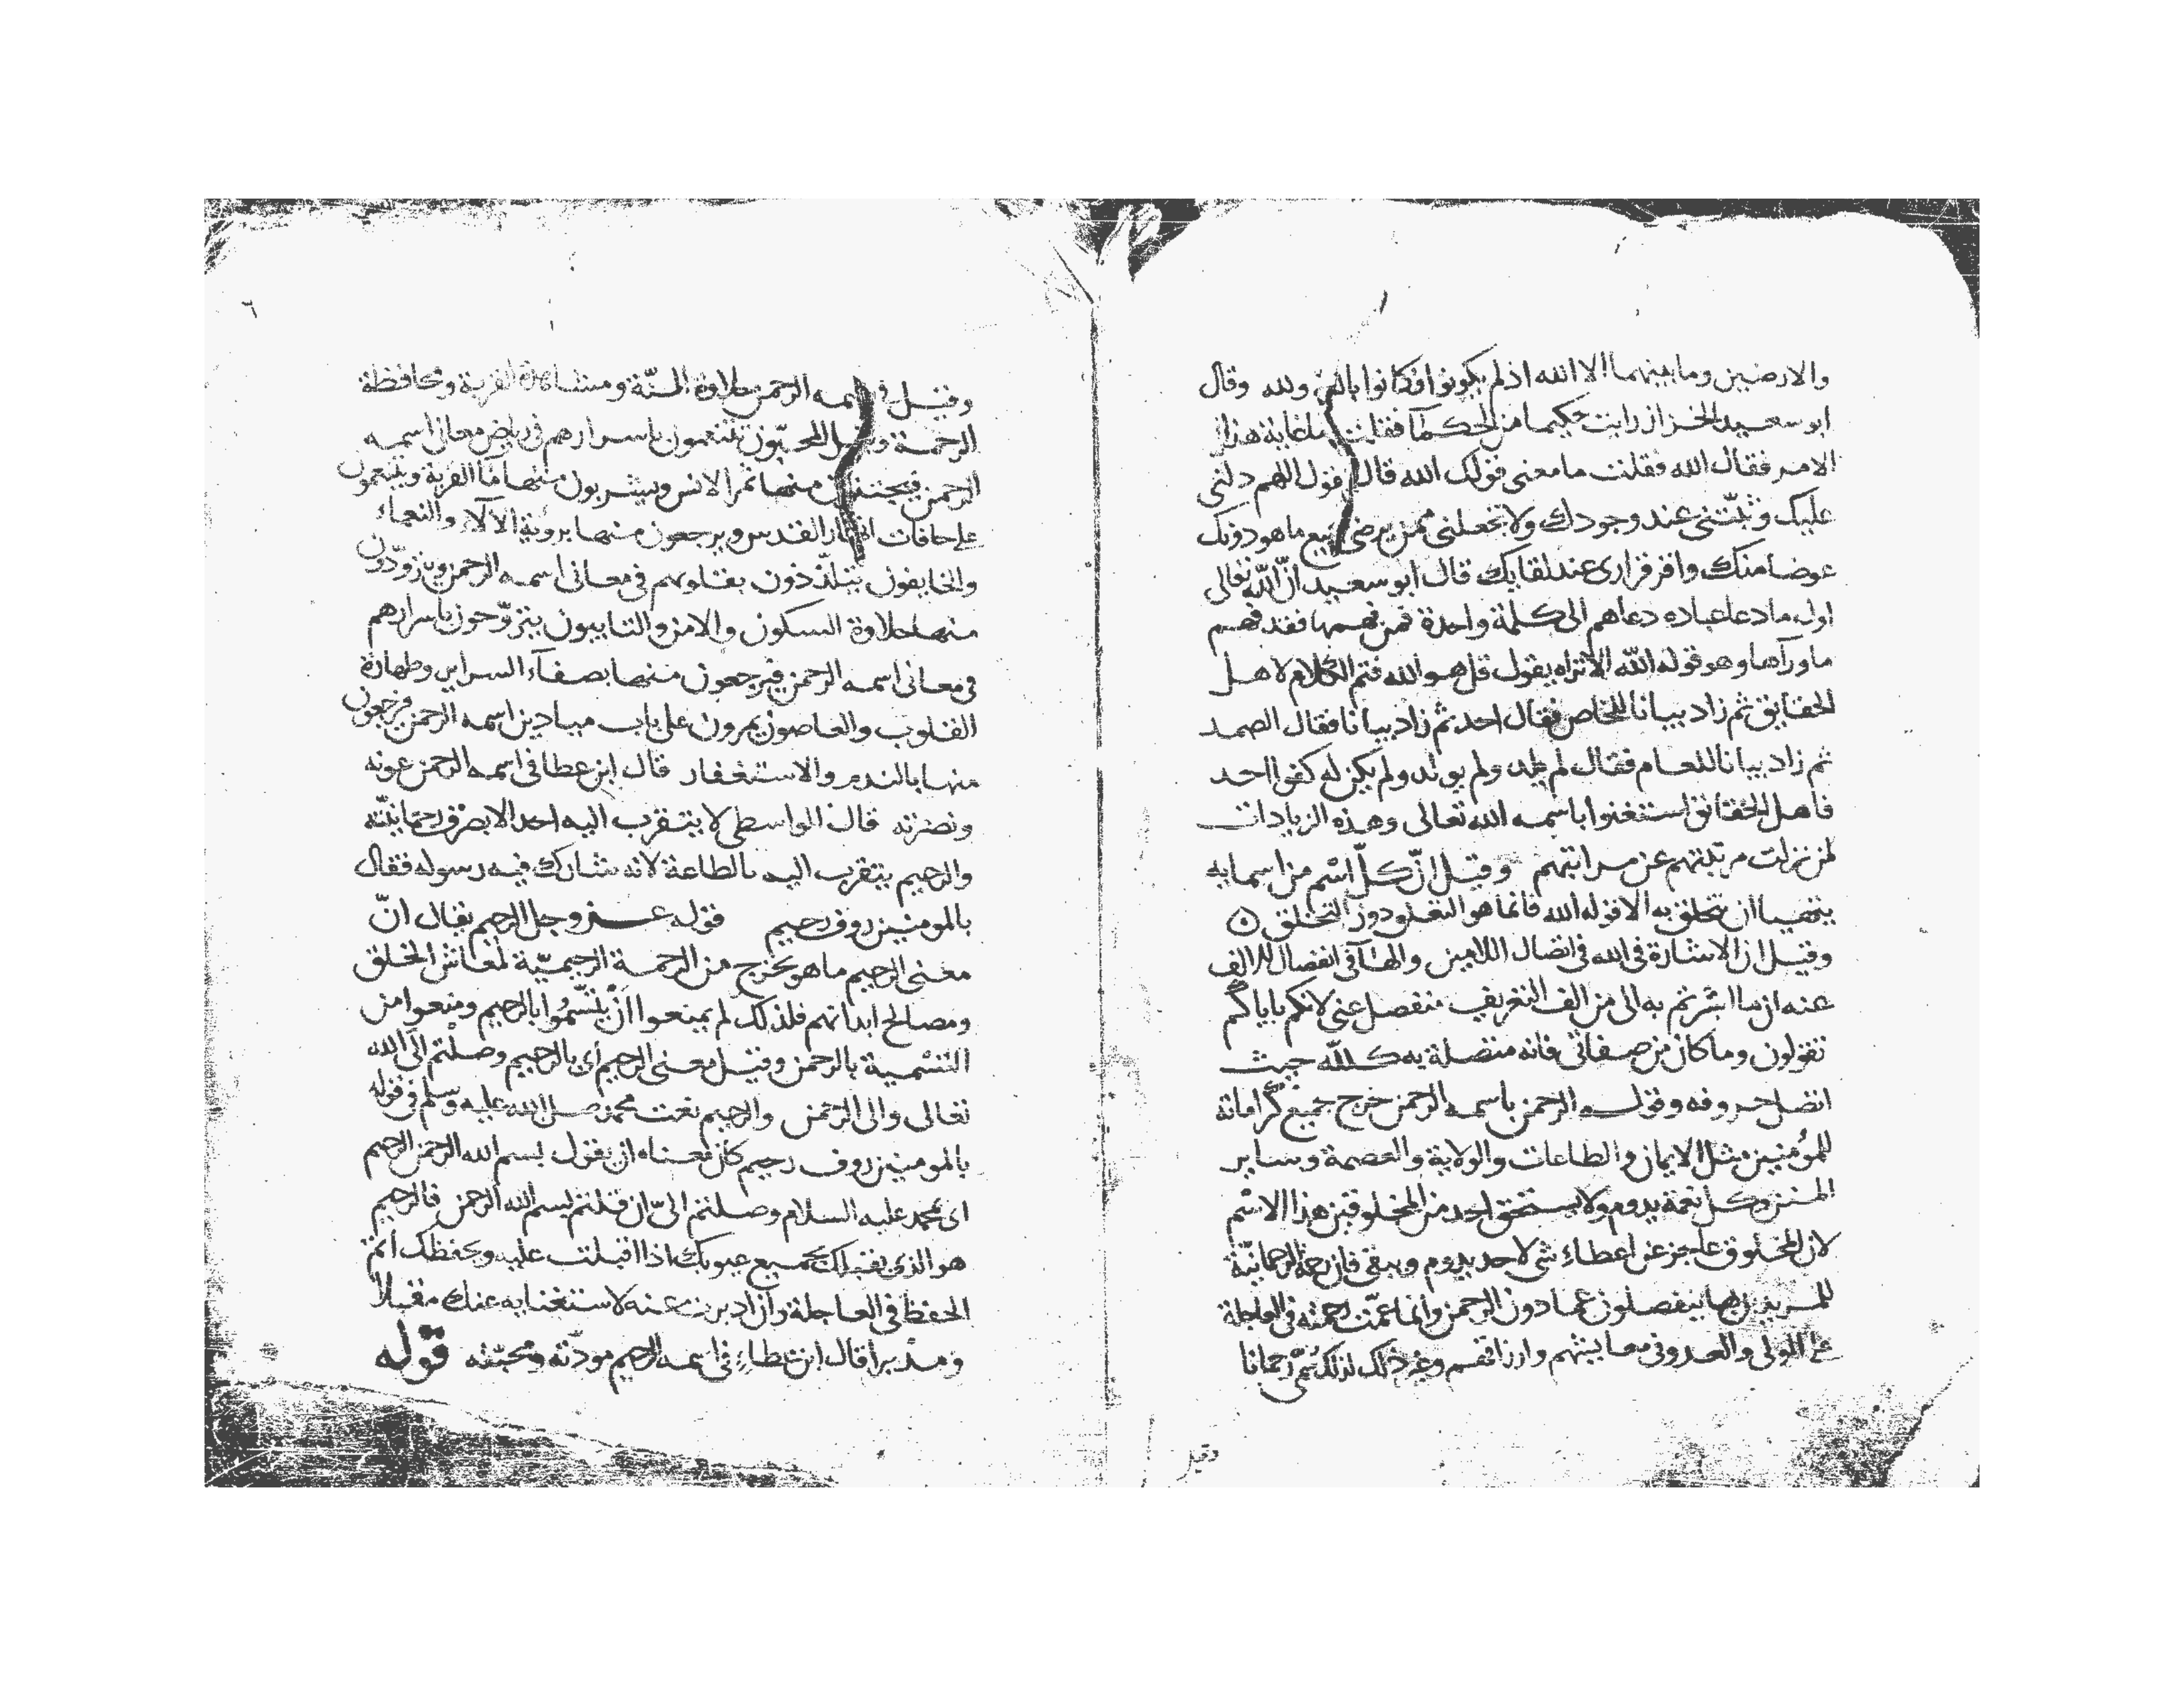 والارضين وما بينهما الا الله اذ لم يكونوا فكانوا بالله ولله وقال
ابو سعيد الخراز رايت حكيما من الحكما فقلت ما غاية هذا
الامر فقال الله فقلت ما معنى قولك الله قال قول اللهم دلنى
عليك وثبتنى عند وجودك ولا تجعلنى ممن يرضى بجميع ما هو دونك
عوضا منك واقر قرارى عند لقايك قال ابو سعيد انّ الله تعالى
اول ما دعا عباده دعاهم الى كلمة واحدة فمن فهمها فقد فهم
ما ورآها وهو قوله الله الا تراه يقول قل هو الله فتم الكلام لاهل
الحقايق ثم زاد بيانا للخاص فقال احد ثم زاد بيانا فقال الصمد
ثم زاد بيانا للعام فقال لم يلد ولم يولد ولم يكن له كفوا احد
فاهل الحقائق استغنوا باسمه الله تعالى وهذه الزيادات
لمن نزلت مرتبتهم عن مراتبهم وقيل انّ كلّ اسم من اسمايه
يتهيا ان يتخلق به الا قوله الله فانما هو التعلق دون التخلق
وقيل ان الاشارة فى الله فى اتصال اللامين والهآ فى انفصال الالف
عنه ان ما اشرتم به الى من الف التعريف منفصل عنى لانكم باياكم
تقولون وما كان من صفاتى فانه متصلة به كلله حيث
اتصل حروفه وقوله الرحمن باسمه الرحمن خرج جميع كراماته
للمؤمنين مثل الايمان والطاعات والولاية والعصمة وساير
المنن وكل نعمة يدوم ولا يستحق احد من المخلوقين هذا الاسم
لان المخلوق عاجز عن اعطاء شى لاحد يدوم ويبقى فان رحمة الرحمانيّة
للمريدين بها ينفصلون عما دون الرحمن وانما عمّت رحمته فى العاجلة
على الولى والعدو فى معايشهم وارزاقهم وغير ذلك لذلك سمّى رحمانا
وقيل
٦
وقيل فى اسمه الرحمن حلاوة المنّة ومشاهدة القربة ومحافظة
الرحمة وقيل المحبّون يتنعمون باسرارهم فى رياض معانى اسمه
الرحمن فيجتنون منها ثمر الانس ويشربون منها ما القربة ويتنعمون
على حافات انهار القدس ويرجعون منها برؤية الآلاء والنعماء
والخايفون يتلذذون بقلوبهم فى معانى اسمه الرحمن ويتزوّدون
منها حلاوة السكون والامن والتايبون يتروّحون باسرارهم
فى معانى اسمه الرحمن فيرجعون منها بصفآء السراير وطهارة
القلوب والعاصون يمرون على باب ميادين اسمه الرحمن فيرجعون
منها بالندم والاستغفار قال ابن عطا فى اسمه الرحمن عونه
ونصرته قال الواسطى لا يتقرب اليه احد الا بصرف رحمانيّته
والرحيم يتقرب اليه بالطاعة لانه شارك فيه رسوله فقال
بالمومنين روف رحيم قوله عز وجل الرحيم يقال انّ
معنى الرحيم ما هو يخرج من الرحمة الرحيميّة لمعاش الخلق
ومصالح ابدانهم فلذلك لم يمنعوا ان يتسموا بالرحيم ومنعوا من
التسمية بالرحمن وقيل معنى الرحيم اى بالرحيم وصلتم الى الله
تعالى والى الرحمن والرحيم نعت محمد صلى الله عليه وسلم فى قوله
بالمومنين روف رحيم كان معناه ان يقول بسم الله الرحمن الرحيم
اى بمحمد عليه السلام وصلتم الىّ ان قلتم بسم الله الرحمن فالرحيم
هو الذى يقبلك بجميع عيوبك اذا اقبلت عليه ويحفظك اتم
الحفظ فى العاجلة وان ادبرت عنه لاستغنايه عنك مقبلا
ومدبرا قال ابن عطاء فى اسمه الرحيم مودّته ومحبّته قوله